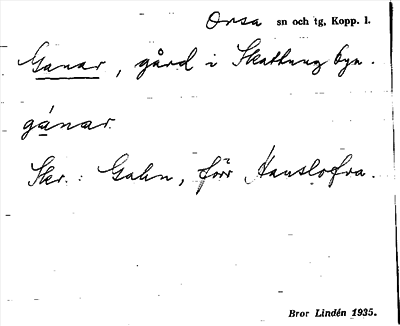 Orsa sn och tg, Kopp. l.
Ganar, gård i Skattung byn.
gánar.
Skr.: Gahn, förr Hanslofra.
Bror Lindén 1935.